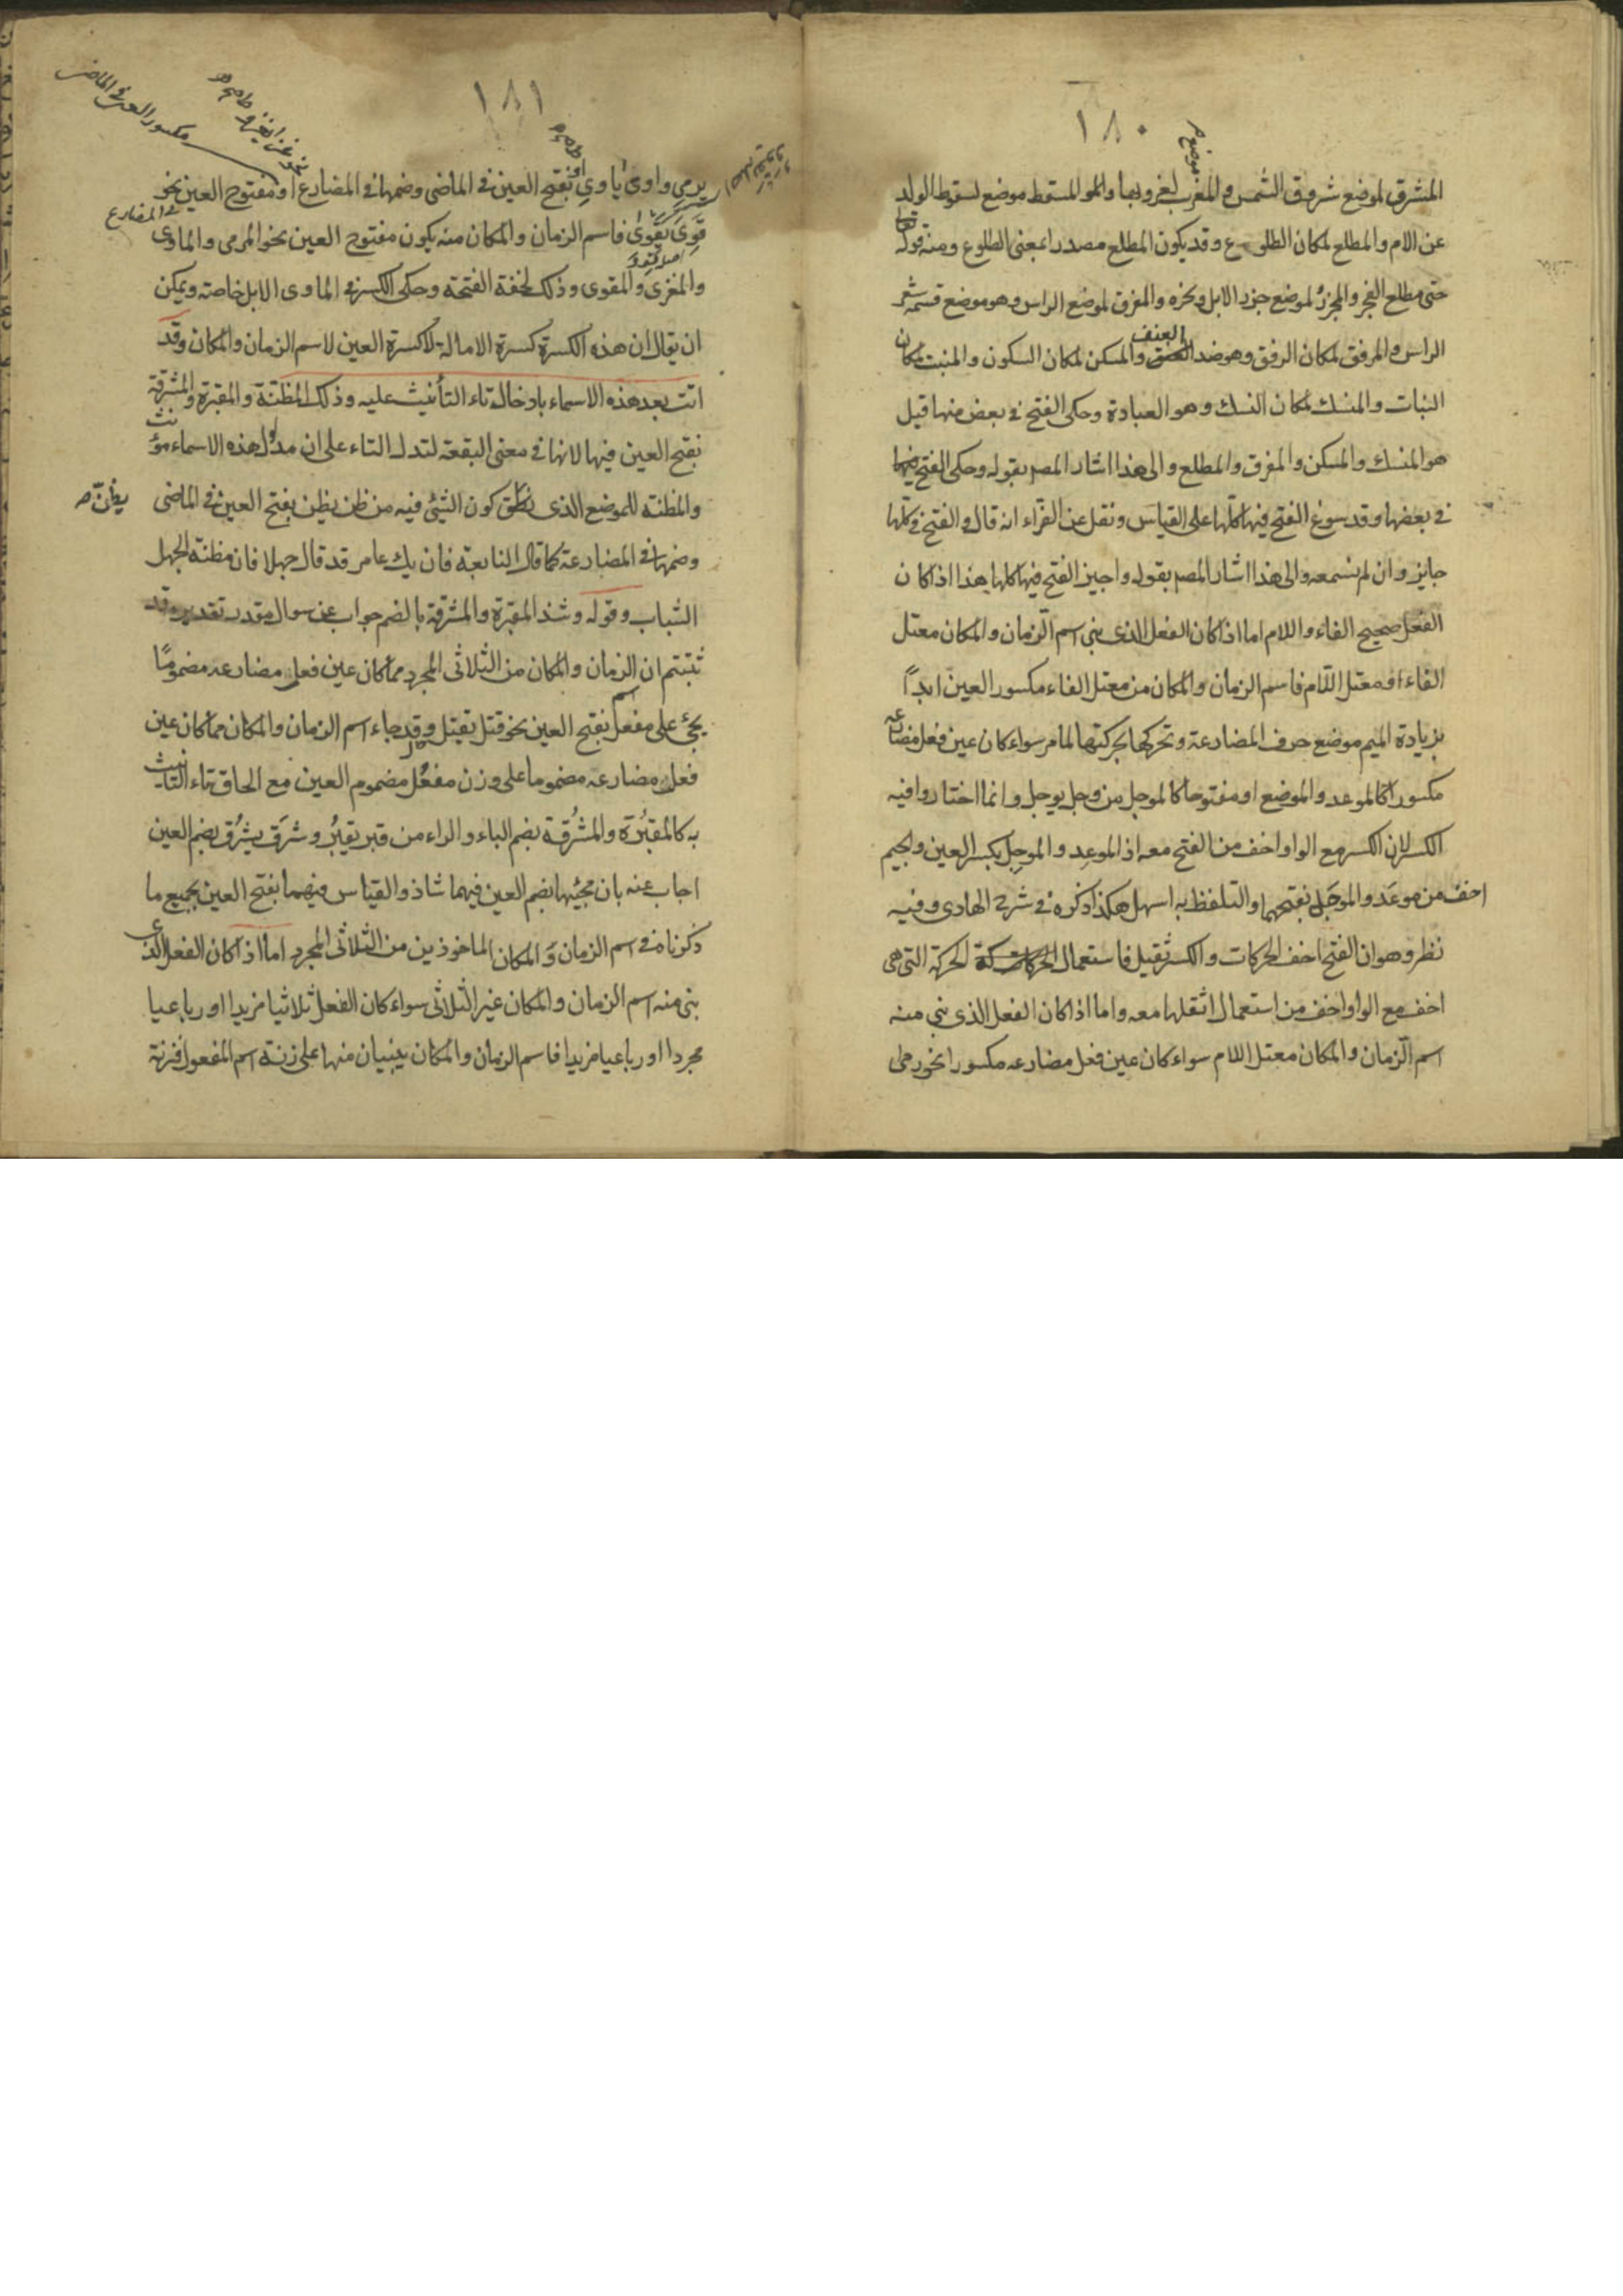 ١٨٠
موضع
المشرق لموضع شروق الشمس والمغرب لغروبها والمسقط موضع لسقوط الولد
عن الام والمطلع لمكان الطلوع وقد يكون المطلع مصدرا بمعنى الطلوع ومنه قوله تعا
حتى مطلع الفجر والمجزر لموضع جزر الابل ونحره والمفرق لموضع الراس وهو موضع قسمة شعر
الراس والمرفق لمكان الرفق وهو ضد العنف والمسكن لمكان السكون والمنبت لمكان
النبات والمنسك لمكان النسك وهو العبادة وحكى الفتح فى بعض منها قيل
هو المنسك والمسكن والمفرق والمطلع والى هذا اشار المصم بقوله وحكى الفتح فيها
فى بعضها وقد سوغ الفتح فيها كلها على القياس ونقل عن الفراء انه قال والفتح فى كلها
جايز وان لم نسمعه والى هذا اشار المصم بقوله واجيز الفتح فيها كلها هذا اذا كان
الفعل صحيح الفاء واللام اما اذا كان الفعل الذى بنى اسم الزمان والمكان معتل
الفاء او معتل اللام فاسم الزمان والمكان من معتل الفاء مكسور العين ابدًا
بزيادة الميم موضع حرف المضارعة وتحركها بحركتها لما مر سواء كان عين فعل مضارعه
مكسورا كالموعد والموضع او مفتوحا كالموجل من وجل يوجل وانما اختاروا فيه
الكسر لان الكسر مع الواو اخف من الفتح معه اذ الموعِد والموجِل بكسر العين والجيم
اخف من موعَد والموجَل بفتحهما والتلفظ به اسهل هكذا ذكره فى شرح الهادى وفيه
نظر وهو ان الفتح اخف الحركات والكسر ثقيل فاستعمال الحركة التى هى
اخف مع الواو اخف من استعمال اثقلها معه واما اذا كان الفعل الذى بنى منه
اسم الزمان والمكان معتل اللام سواء كان عين فعل مضارعه مكسورا نحو رمى
١٨١
مكسور العين فى الماضى
نحو غزا يغزو
يرمى واوى ياوى او بفتح العين فى الماضى وضمها فى المضارع او مفتوح العين نحو
فى المضارع
قوى يقوى فاسم الزمان والمكان منه يكون مفتوح العين نحو المرمى والماوى
والمغزى والمقوى وذلك لخفة الفتحة وحكى الكسر فى الماوى الابل خاصة ويمكن
ان يقال ان هذه الكسرة كسرة الامالة لا كسرة العين لاسم الزمان والمكان وقد
انت بعد هذه الاسماء بادخال تاء التأنيث عليه وذلك المظنّة والمقبرة والمشرقة
بفتح العين فيها لانها فى معنى البقعة لتدل التاء على ان مدلول هذه الاسماء مؤنث
والمظنة للموضع الذى يظن كون الشئ فيه من ظن يظن بفتح العين فى الماضى
يظنّ
وضمها فى المضارعة كما قال النابعة فان يك عامر قد قال جهلا فان مظنة الجهل
الشباب وقوله وشذ المقبرة والمشرقة بالضم جواب عن سوال مقدر تقديره قد
ثبتتم ان الزمان والمكان من الثلاثى المجرد مما كان عين فعل مضارعه مضمومًا
يجئ على مفعل بفتح العين نحو قتل يقتل وقد جاء اسم الزمان والمكان مما كان عين
فعل مضارعه مضموما على وزن مفعُل مضموم العين مع الحاق تاء التانيث
به كالمقبُرة والمشرُقة بضم الباء والراء من قبر يقبُر وشرَق يشرُق بضم العين
اجاب عنه بان مجيئها بضم العين فيهما شاذ والقياس فيهما بفتح العين جميع ما
ذكرناه فى اسم الزمان والمكان الماخوذين من الثلاثى المجرد اما اذا كان الفعل الذى
بنى منه اسم الزمان والمكان غير الثلاثى سواء كان الفعل ثلاثيا مزيدا او رباعيا
مجردا او رباعيا مزيدا فاسم الزمان والمكان يبنيان منها على زنة اسم المفعول فزنة